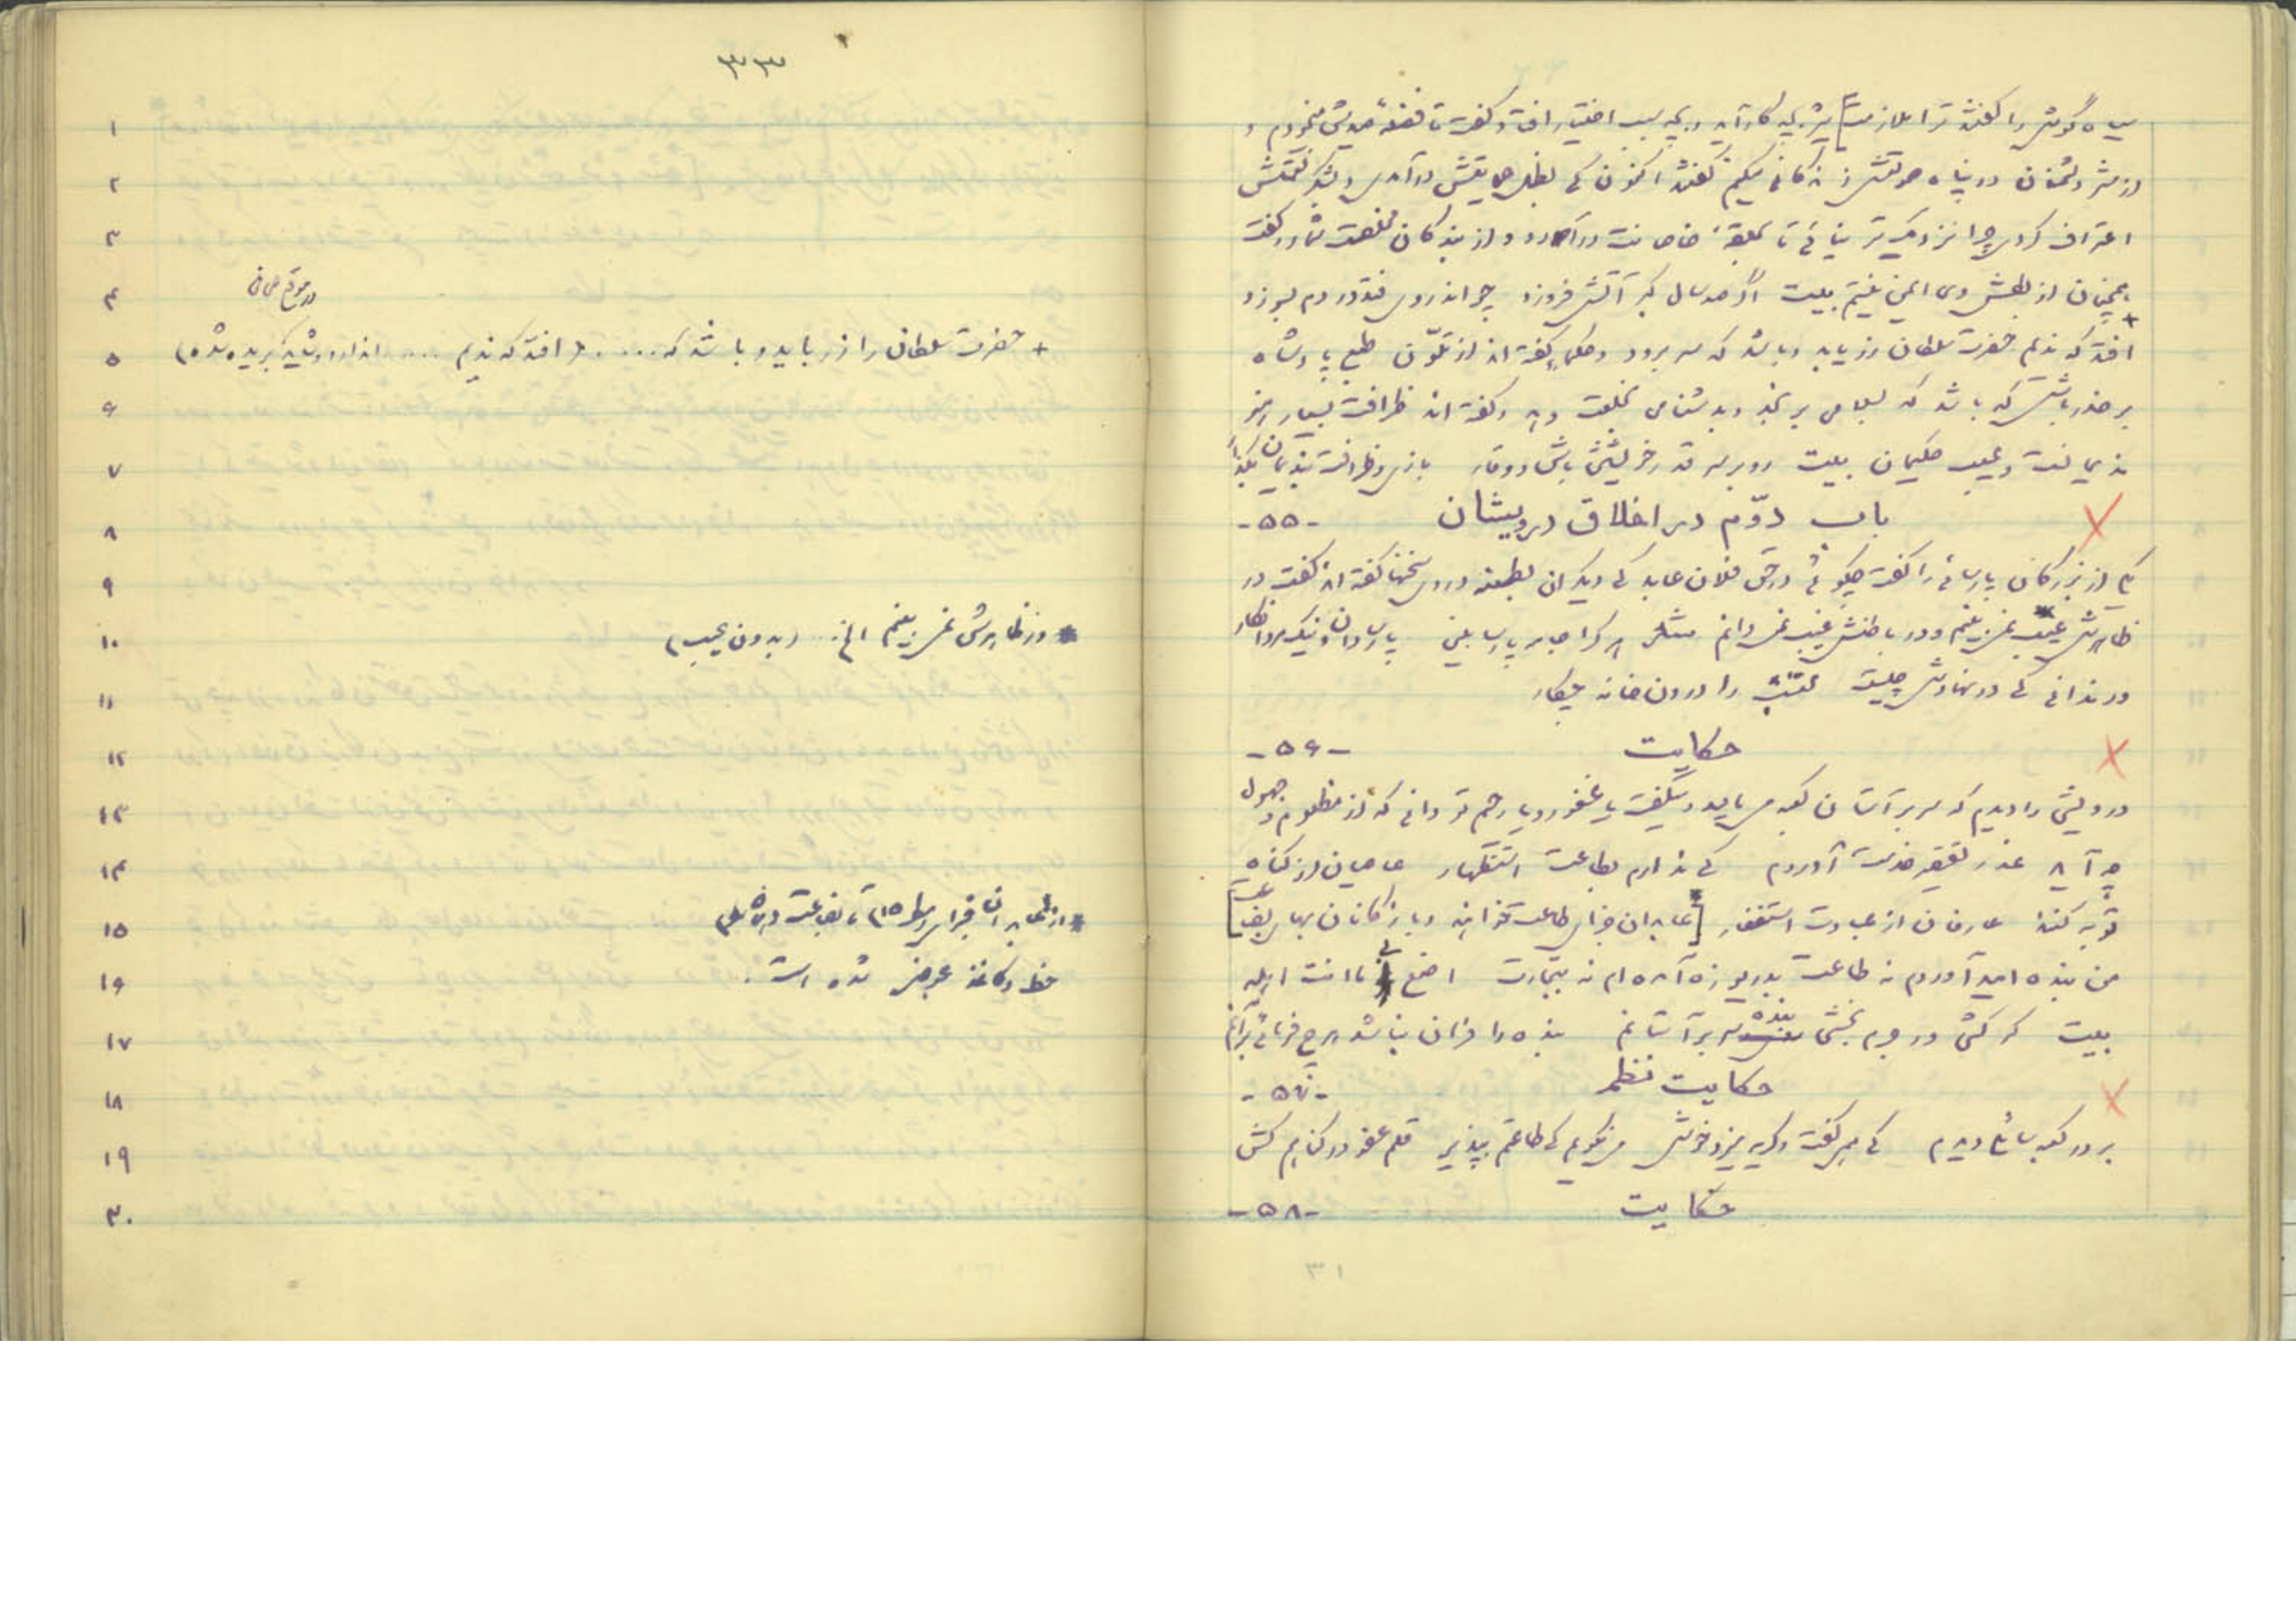 سیاه گوش را گفتند ترا ملازمت] شیر بچه کار آید و بچه سبب اختیار افتاد گفت تا فضلهٔ صیدش میخورم و
از شر دشمنان در پناه صولتش زندگانی میکنم گفتند اکنون که بظل حمایتش درآمدی و بشکر نعمتش
اعتراف کردی چرا نزدیک تر نیائی تا بحلقهٔ خاصانت درآورد و از بندگان مخلصت شمارد گفت
همچنان از بطش وی ایمن نیستم بیت اگر صد سال گبر آتش فروزد چو اندروی فتد در دم بسوزد
+ افتد که ندیم حضرت سلطان زر یابد و باشد که سر برود و حکما گفته اند از تلوّن طبع پادشاه
بر حذر باش که باشد که بسلامی برنجند و بدشنامی خلعت دهد و گفته اند ظرافت بسیار هنر
ندیمانست و عیب حکیمان بیت رو بر سر قدر خویشتن باش و وقار بازی و ظرافت بندیمان بگذار
باب دوّم در اخلاق درویشان -۵۵-
یکی از بزرگان پارسائی را گفت چگوئی در حق فلان عابد که دیگران بطعنه در وی سخنها گفته اند گفت در
ظاهرش عیب نمی بینم و در باطنش غیب نمی دانم هر کرا جامه پارسا بینی پارسا دان و نیک مرد انگار
ور ندانی که در نهادش چیست محتسب را درون خانه چکار
حکایت -۵۶-
درویشی را دیدم که سر بر آستان کعبه می مالید و میگفت یا غفور و یا رحیم تو دانی که از ظلوم و جهول
چه آید عذر تقصیر خدمت آوردم که ندارم بطاعت استظهار عاصیان از گناه
توبه کنند عارفان از عبادت استغفار [عابدان جزای طاعت خواهند و بازرگانان بهای بضاعت]
من بنده امید آوردم نه طاعت بدریوزه آمده ام نه بتجارت اصنع بی ما انت اهله
بیت گر کشی ور جرم بخشی بنده سر بر آستانم بنده را فرمان نباشد هرچ فرمائی برآنم
حکایت نظم -۵۷-
بر در کعبه سائلی دیدم که همی گفت و گریه میزد خوش می نگویم که طاعتم بپذیر قلم عفو در گناهم کش
حکایت -۵۸-
۳۱
۳۳
۱
۲
۳
۴
۵ + حضرت سلطان را زر باید و باشد که .... (افتد که ندیم ....
۶
۷
۸
۹
۱۰ * در ظاهرش نمی بینم الخ .. (بدون عیب)
۱۱
۱۲
۱۳
۱۴
۱۵ * از عابدان جزای (سطر ۱۵) تا بضاعت
۱۶ خط و کاغذ عوض شده است.
۱۷
۱۸
۱۹
۲۰